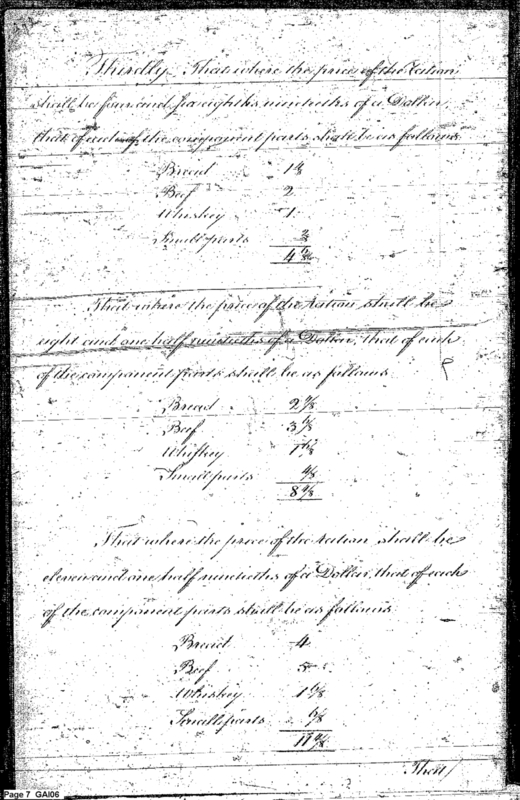 Thirdly. That where the price of the ration
shall be four and six eighths ninetieths of a Dollar,
that of each of the component parts shall be as follows
Bread
Beef 2
Whiskey 1
Small parts
4 6/8
That where the price of the ration shall be
eight and one half ninetieths of a Dollar, that of each
of the component parts shall be as follows
Bread 2 6/8
Beef 3 6/8
Whiskey
Small parts 4/8
8 4/8
That where the price of the ration shall be
eleven and one half ninetieths of a Dollar, that of each
of the component parts shall be as follows.
Bread 4
Beef 5
Whiskey 1 6/8
Small parts 6/8
11 4/8
That/
Page 7 GAI06